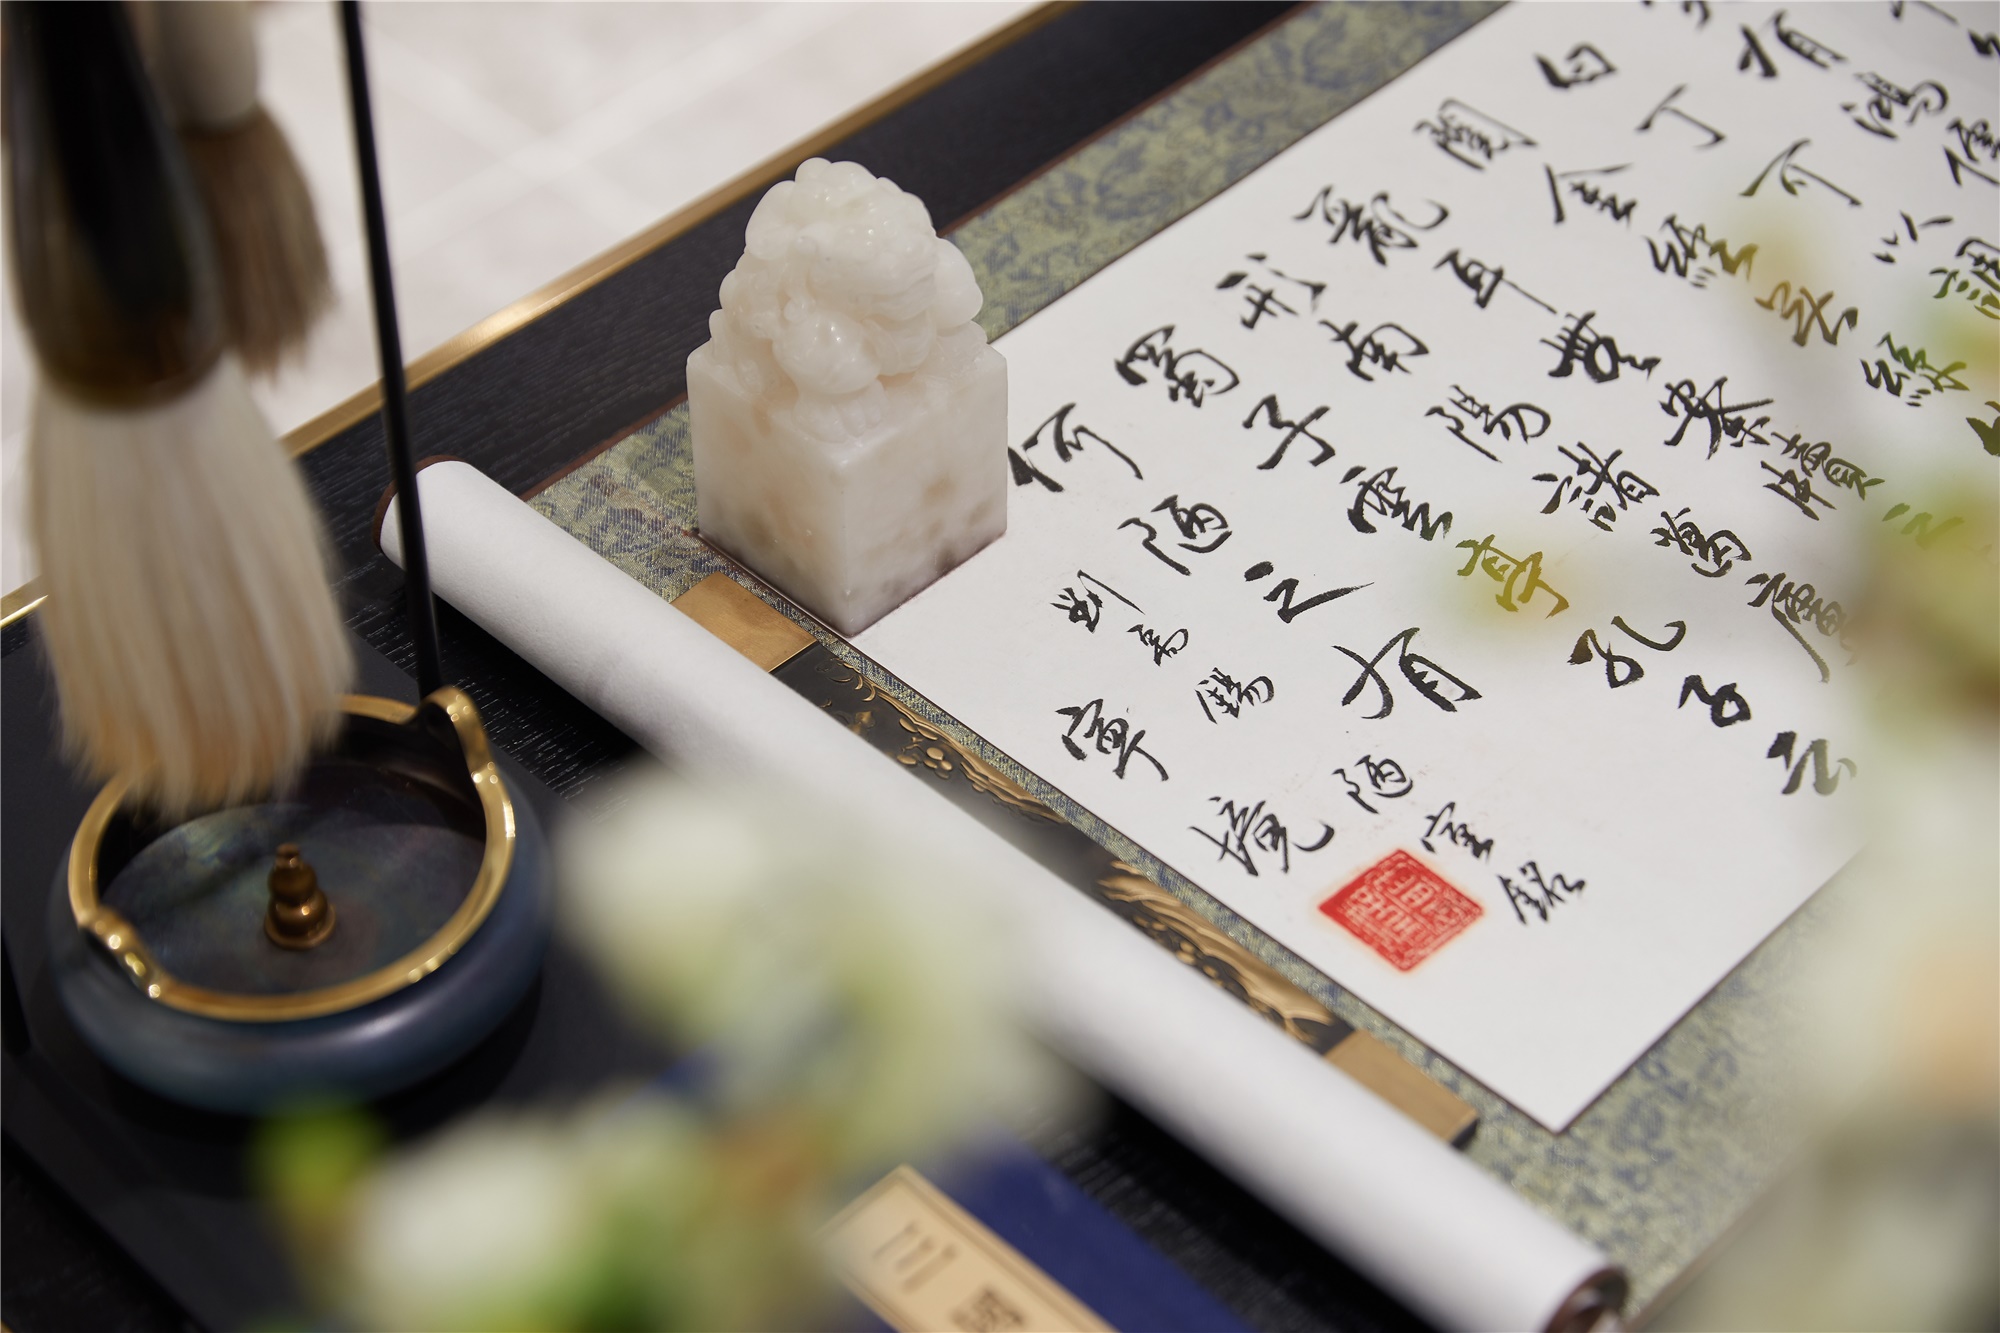 有鴻儒
白丁可以調
閱金經无絲
亂耳無案牘之
形南陽諸葛廬
蜀子雲亭孔子云
何陋之有
劉禹錫陋室銘